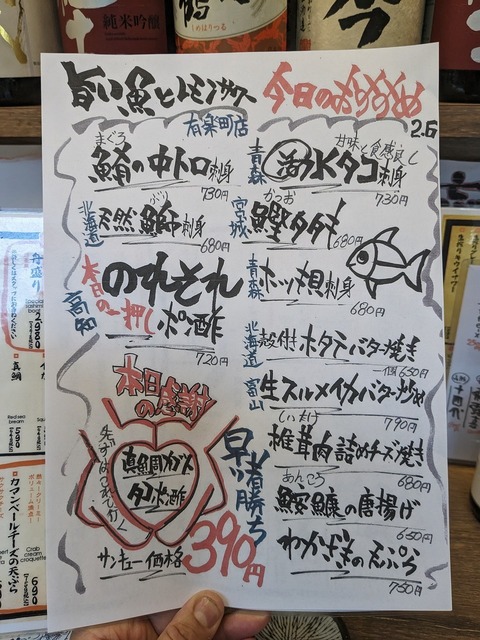 純米吟醸
旨い魚とレモンサワー
今日のおすすめ
有楽町店
2.6
まぐろ
鮪の中トロ刺身
730円
北海道
ぶり
天然鰤刺身
680円
本日の一押し
高知
のれそれ
ポン酢
720円
本日の感謝
先ずはこれでしょ
真鯛ガツ
タタポン酢
早い者勝ち
サンキュー価格
390円
青森
甘味と食感良し
活水タコ刺身
730円
宮城
かつお
鰹タタキ
680円
青森
ホッキ貝刺身
680円
北海道
殻付ホタテバター焼き
1個650円
富山
生スルメイカバター炒め
790円
しいたけ
椎茸肉詰めチーズ焼き
680円
あんこう
鮟鱇の唐揚げ
650円
わかさぎの天ぷら
750円
舟盛り
真鯛
Red sea bream
590
カマンベールチーズの天ぷら
Crab cream croquette
690